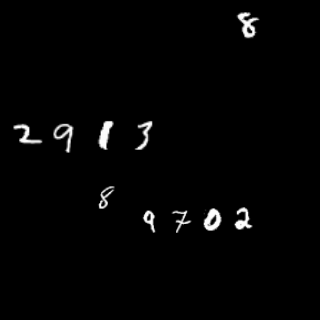 8
2913
8
9702